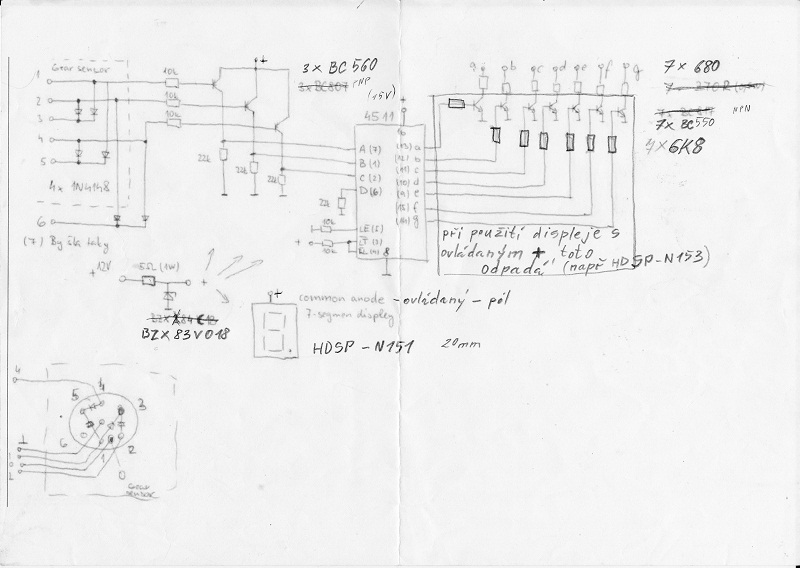 Gear sensor
1
2
3
4
5
6
4x 1N4148
10k
10k
10k
22k
22k
22k
22k
+
3x BC 560
3x BC807 PNP
(15V)
+
4511
16
A (7)
B (1)
C (2)
D (6)
LE (5)
LT (3)
BL (4)
8
(13) a
(12) b
(11) c
(10) d
(9) e
(15) f
(14) g
10k
+
10k
a
b
c
d
e
f
g
7x 680
NPN
7x BC550
7x6K8
při použití displeje s
ovládaným + toto
odpadá (např HDSP-N153)
+12V
(1W)
+
BZX83V018
+
common anode - ovládaný - pól
7-segmen display
HDSP - N151
20mm
4
5
4
3
6
1
2
Gear
sensor